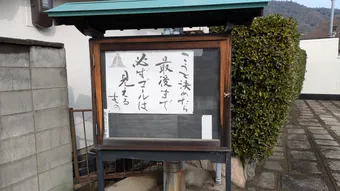 こうと決めたら
最後まで
必ずゴールは
見えるもの